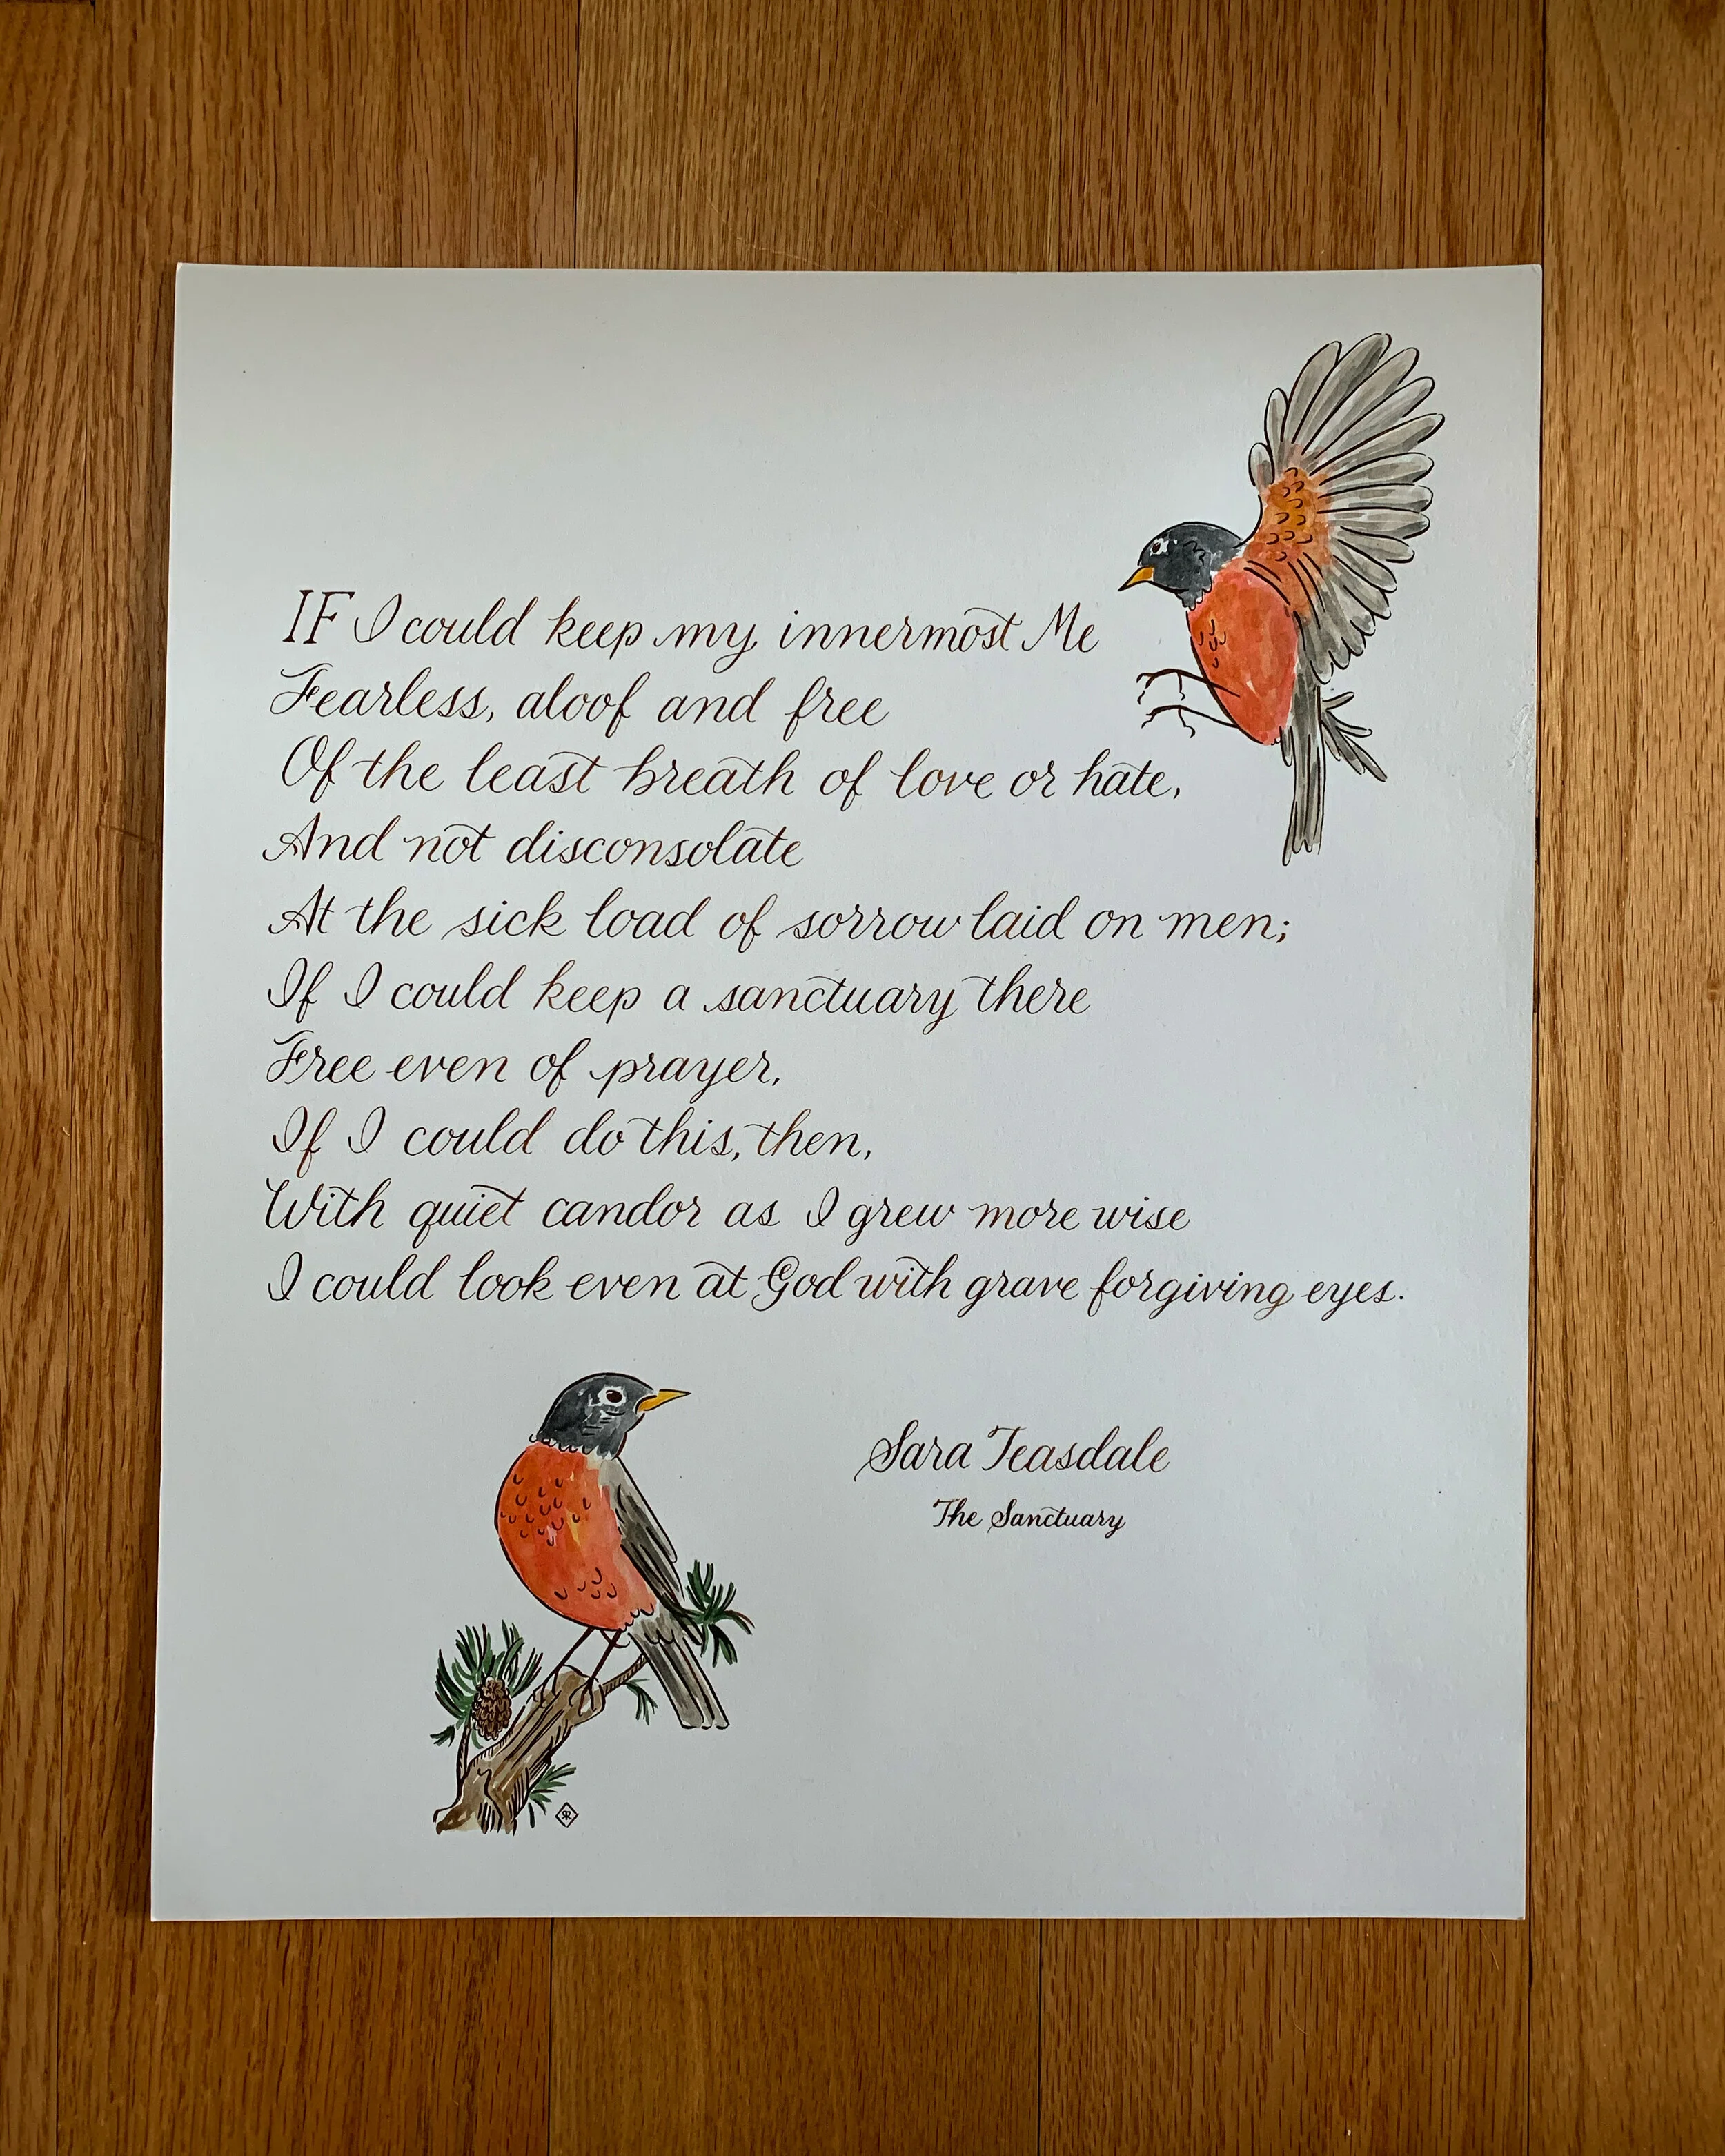 IF I could keep my innermost Me
Fearless, aloof and free
Of the least breath of love or hate,
And not disconsolate
At the sick load of sorrow laid on men;
If I could keep a sanctuary there
Free even of prayer,
If I could do this, then,
With quiet candor as I grew more wise
I could look even at God with grave forgiving eyes.
Sara Teasdale
The Sanctuary